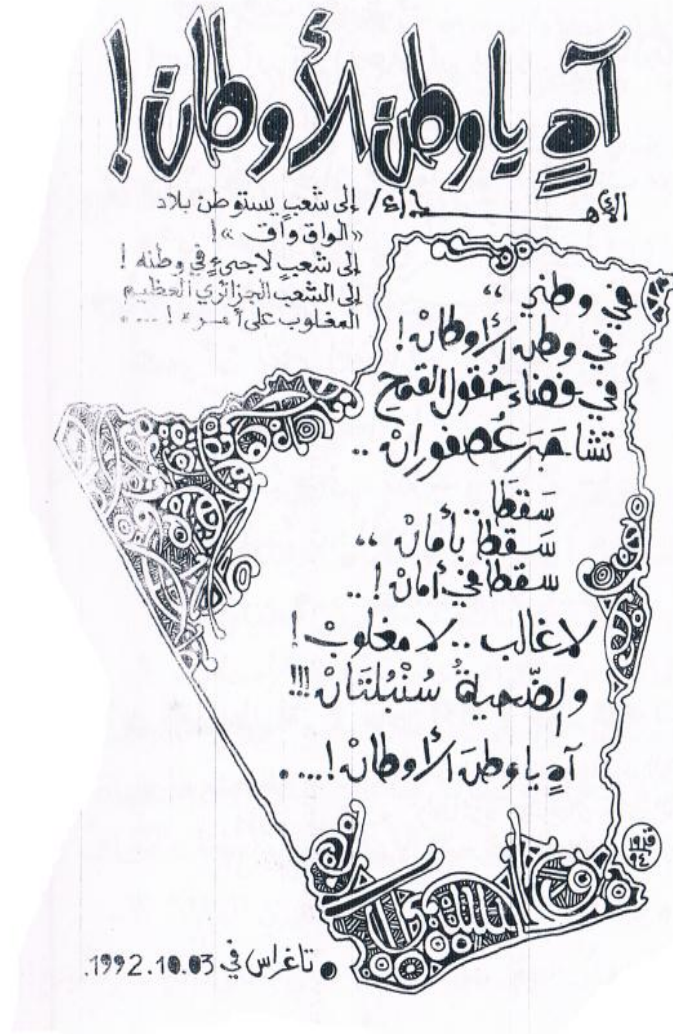 آهٍ يا وطن الأوطان!
الإهـــــــداء/ إلى شعبٍ يستوطن بلاد
«الواق واق»!
إلى شعبٍ لاجىءٍ في وطنه!
إلى الشعب الجزائري العظيم
المغلوب على أمره!....
في وطني ،،
في وطن الأوطانْ!
في فضاء حُقول القمح
تشاجَرَ عُصفورانْ ..
سَقطَا
سَقطَا بأمانْ ،،
سقطا في أمانْ! ..
لا غالب .. لا مغلوبْ!
والضّحيةُ سُنْبُلتَانْ!!!
آهٍ يا وطنَ الأوطانْ!....
• تاغراس في 1992.10.03.